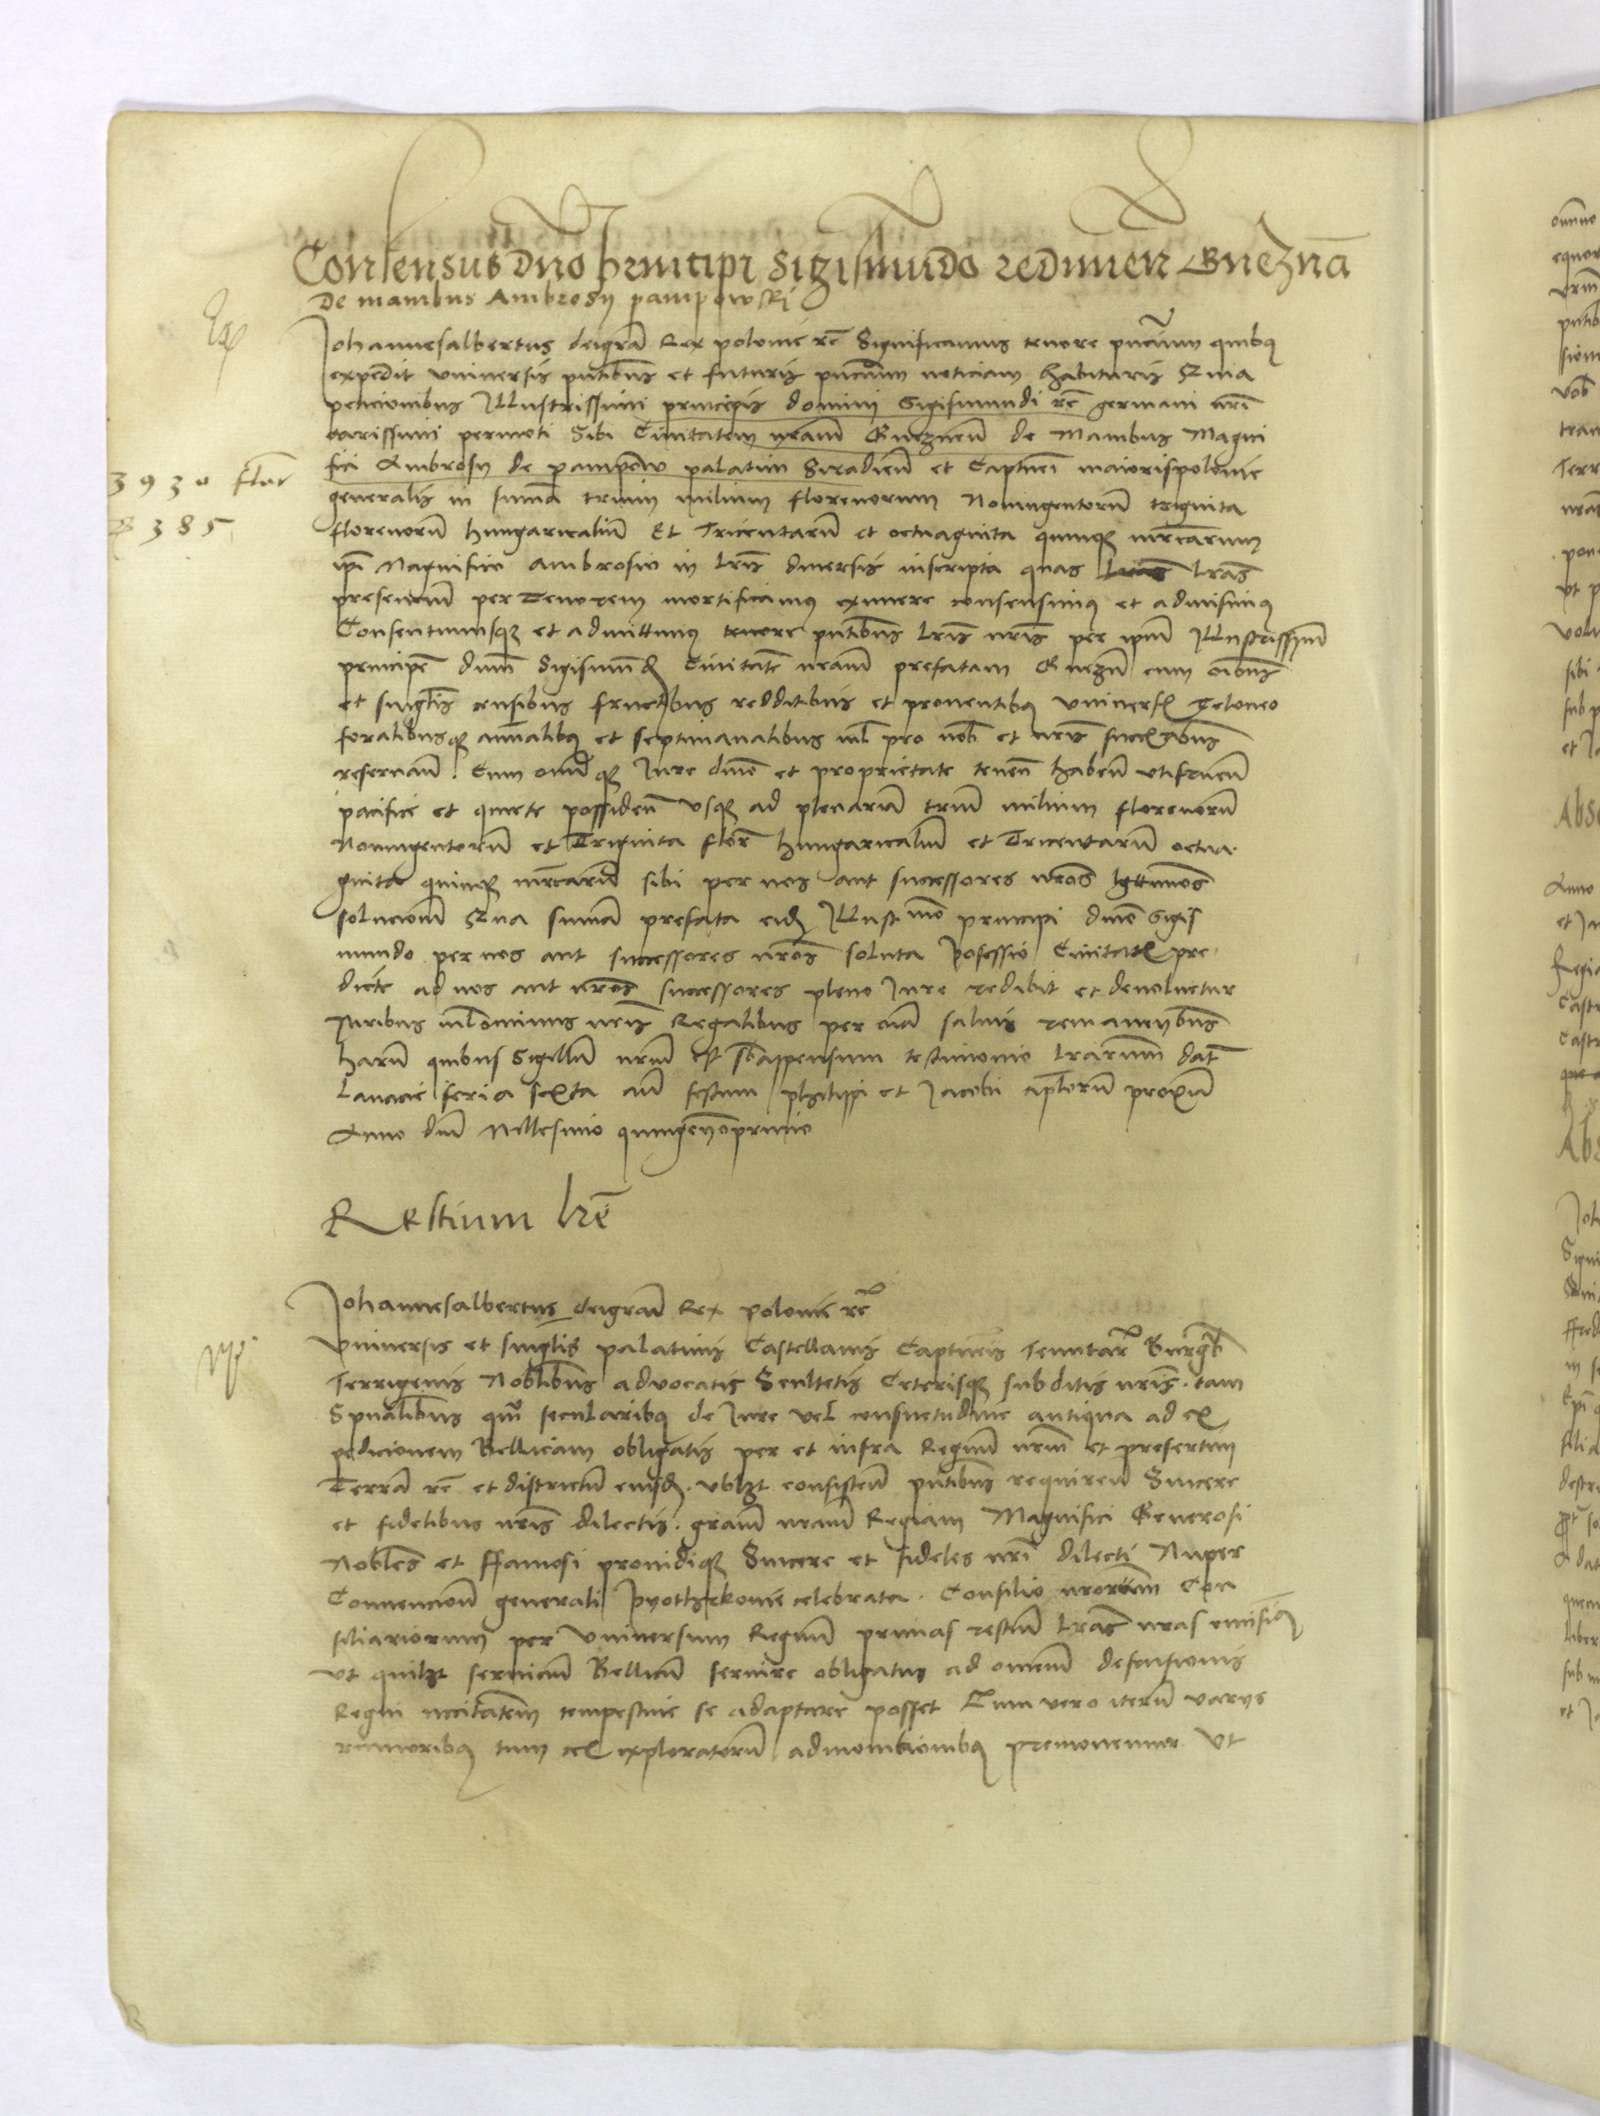 Consensus dno principi Sigismundo redimen Gneznam
De manibus Ambrosy pampowski
Johannesalbertus deigra Rex polonie rc Significamus tenore pncium quibus
expedit universis pntibus et futuris pncium noticiam habituris Quia
peticionibus Illustrissimi principis domini Sigismundi rc germani nri
carissimi permoti Sibi Civitatem nram Gneznen de Manibus Magni
fici Ambrosy de pampow palatini Siradien et Capitnei maiorispolonie
3930 flor
generalis in summa trium milium florenorum Noningentorum triginta
385
florenorum hungaricalium Et Tricentarum et octuaginta quinque mrcarum
ipi Magnifico Ambrosio in lris diversis inscripta quas lras
presencium per Tenorem mortificamus eximere consensimus et admisimus
Consentimusque et admittimus tenore pntibus lris nris per ipm Illustrissimum
principem dnm Sigismund Civitate nram prefatam Gnezn cum oibus
et singlis censibus fructibus redditibus et proventibus universis Teloneo
foralibusque annalibus et septimanalibus nil pro nob et nris successoribus
reservan. Cum omni que Jure dnio et proprietate tenen haben utifruen
pacifice et quiete possiden Usque ad plenariam trium milium florenorum
Noningentorum et Triginta flor hungaricalium et Tricentarum octua
ginta quinque mrcarum sibi per nos aut successores nros lgttimos
solucionem Qua summa prefata eid Illustmo principi dno Sigis
mundo per nos aut successores nros soluta possessio Civitatis pre
dicte ad nos aut nros successores pleno Jure redibit et devolvetur
Juribus nris Regalibus per oia salvis remanentibus
harum quibus Sigillum nrm est sbappensum testimonio lrarum dat
Lancicie feria sexta an festum philippi et Jacobi aplorum proxima
Anno dni Millesimo quingentesimoprimo
Restium lre
Johannesalbertus deigra Rex polonie rc
Universis et singlis palatinis Castellanis Capitneis Tenutar Burgrb
Terrigenis Noblibus advocatis Scultetis Ceterisque subditis nris. tam
Spualibus qm secularibus de Jure vel consuetudine antiqua ad ex
pedicionem Bellicam obligatis per et infra Regnum nrm et presertim
Terram rc et districtum eiusd. ublzt consisten pntibus requiren Sincere
et fidelibus nris dilectis. gram nram Regiam Magnifici Generosi
Nobles et ffamosi providique Sincere et fideles nri dilecti Nuper
Convencione generali pyothrkovie celebrata. Consilio nrorum Con
siliariorum per Universum Regnum primas restium lras nras emisimus
Ut quilzt servicium Bellicum servire obligatus ad omnem defensionis
Regni nccitatem tempestive se adaptare posset Cum vero iterum varys
rumoribus tum exploratorum admonicionibus premonemur Ut